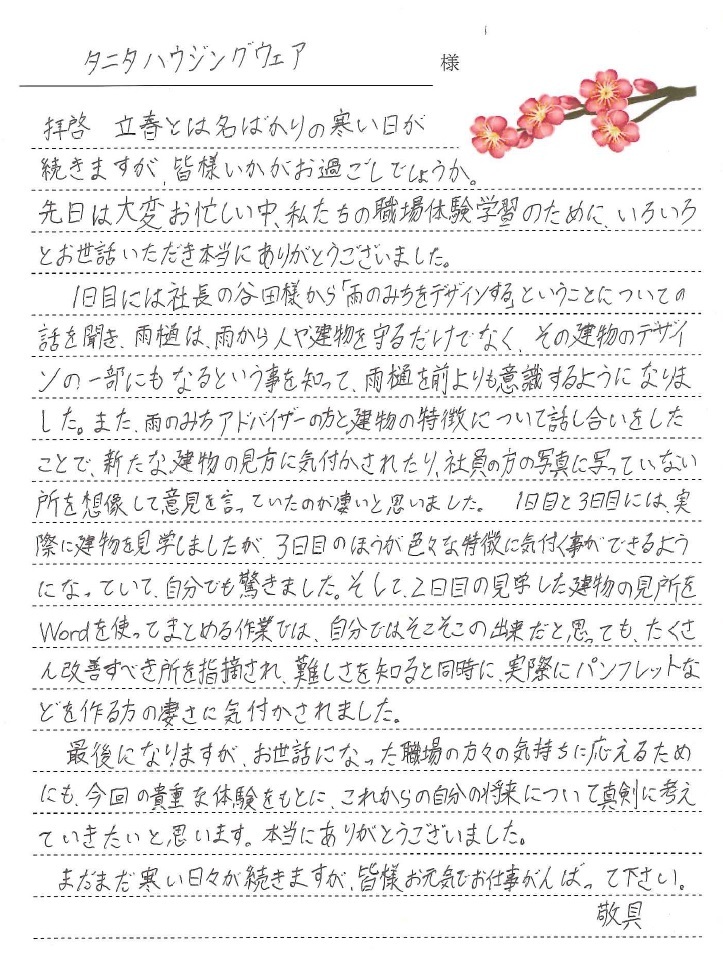 タニタハウジングウェア 様
拝啓 立春とは名ばかりの寒い日が
続きますが、皆様いかがお過ごしでしょうか。
先日は大変お忙しい中、私たちの職場体験学習のために、いろいろ
とお世話いただき本当にありがとうございました。
1日目には社長の谷田様から「雨のみちをデザインする」ということについての
話を聞き、雨樋は、雨から人や建物を守るだけでなく、その建物のデザイ
ンの一部にもなるという事を知って、雨樋を前よりも意識するようになりま
した。また、雨のみちアドバイザーの方と建物の特徴について話し合いをした
ことで、新たな建物の見方に気付かされたり、社員の方の写真に写っていない
所を想像して意見を言っていたのが凄いと思いました。 1日目と3日目には、実
際に建物を見学しましたが、3日目のほうが色々な特徴に気付く事ができるよう
になっていて、自分でも驚きました。そして、2日目の見学した建物の見所を
Wordを使ってまとめる作業では、自分ではそこそこの出来だと思っても、たくさ
ん改善すべき所を指摘され、難しさを知ると同時に、実際にパンフレットな
どを作る方の凄さに気付かされました。
最後になりますが、お世話になった職場の方々の気持ちに応えるため
にも、今回の貴重な体験をもとに、これからの自分の将来について真剣に考え
ていきたいと思います。本当にありがとうございました。
まだまだ寒い日々が続きますが、皆様お元気でお仕事がんばって下さい。
敬具